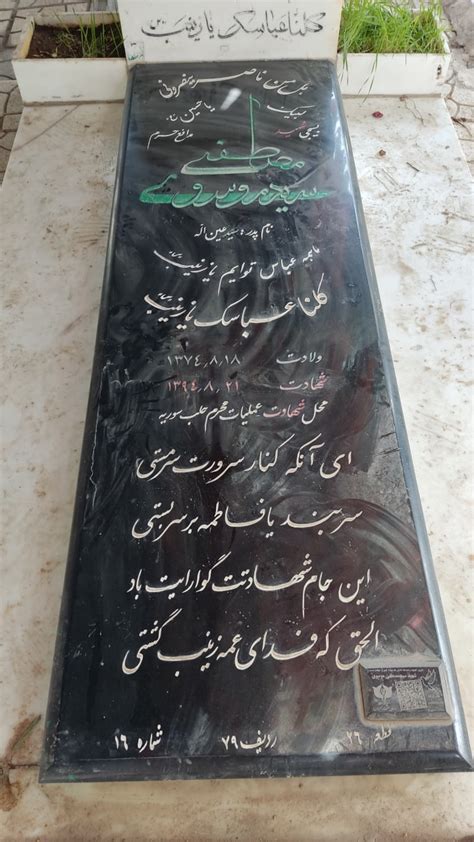 کلنا عباسک یا زینب
هل من ناصر
لبیک یا حسین
بسیجی شهید مدافع حرم
سید مصطفی موسوی
نام پدر: سید عین اله
ما همه عباس توایم یا زینب
کلنا عباسک یا زینب
ولادت ۱۳۷۴٫۸٫۱۸
شهادت ۱۳۹۴٫۸٫۲۱
محل شهادت عملیات محرم حلب سوریه
ای آنکه کنار سرورت سرمستی
سربند یا فاطمه بر سر بستی
این جام شهادتت گوارایت باد
الحق که فدای عمه زینب گشتی
قطعه ۲۶ ردیف ۷۹ شماره ۱۶